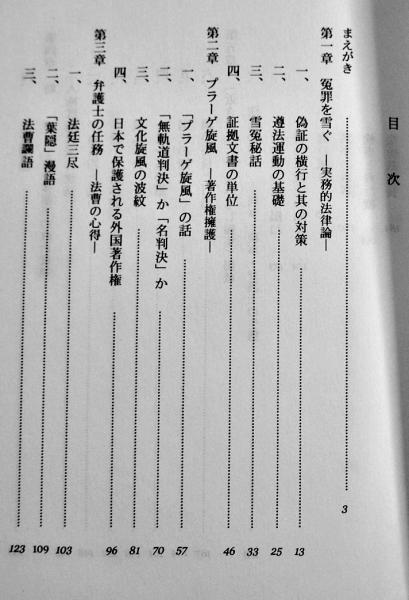 目次
まえがき……3
第一章 冤罪を雪ぐ ―実務的法律論―
一、偽証の横行と其の対策……13
二、遵法運動の基礎……25
三、雪冤秘話……33
四、証拠文書の単位……46
第二章 プラーゲ旋風 ―著作権擁護―
一、「プラーゲ旋風」の話……57
二、「無軌道判決」か「名判決」か……70
三、文化旋風の波紋……81
四、日本で保護される外国著作権……96
第三章 弁護士の任務 ―法曹の心得―
一、法廷三尽……103
二、「葉隠」漫語……109
三、法曹讕語……123